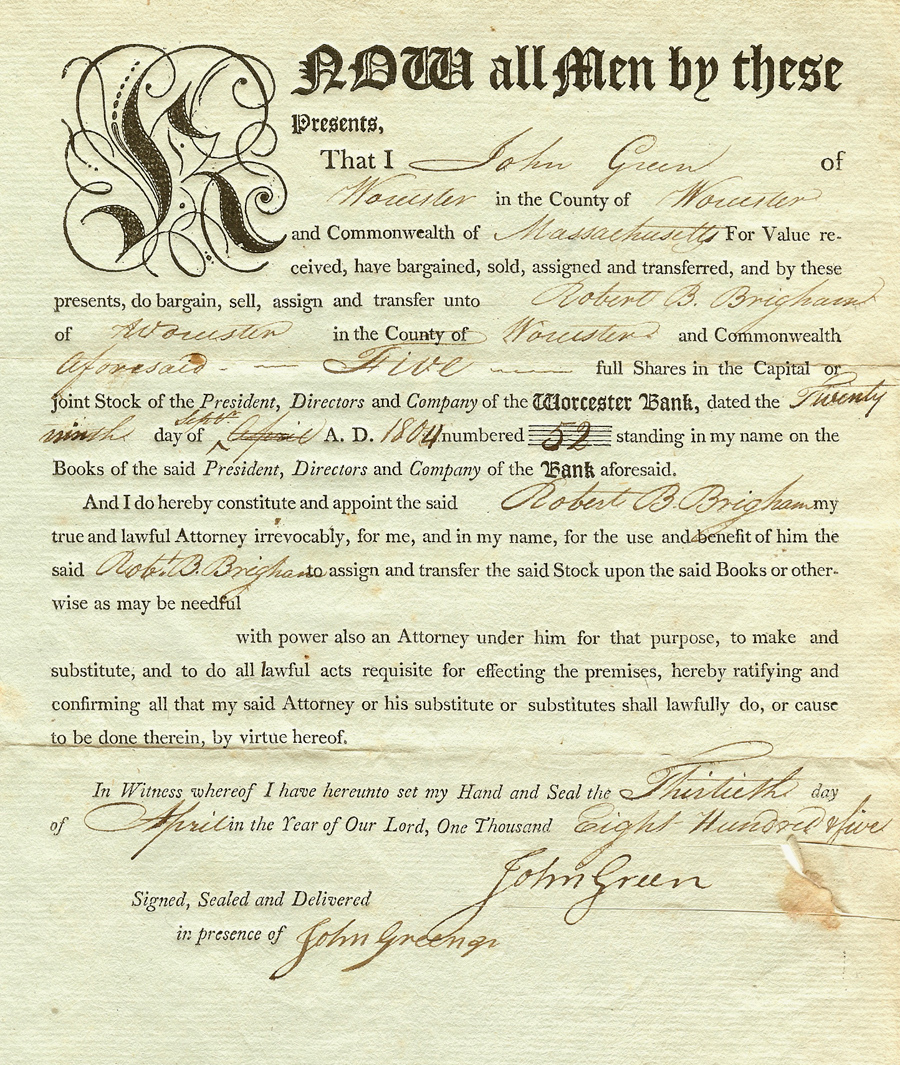 KNOW all Men by these
Presents,
That I John Green of
Worcester in the County of Worcester
and Commonwealth of Massachusetts For Value re-
ceived, have bargained, sold, assigned and transferred, and by these
presents, do bargain, sell, assign and transfer unto Robert B. Brigham
of Worcester in the County of Worcester and Commonwealth
aforesaid - — Five — full Shares in the Capital or
joint Stock of the President, Directors and Company of the Worcester Bank, dated the Twenty
ninth day of Septbr April A. D. 1804 numbered 52 standing in my name on the
Books of the said President, Directors and Company of the Bank aforesaid.
And I do hereby constitute and appoint the said Robert B. Brigham my
true and lawful Attorney irrevocably, for me, and in my name, for the use and benefit of him the
said Robt. B. Brigham to assign and transfer the said Stock upon the said Books or other-
wise as may be needful
with power also an Attorney under him for that purpose, to make and
substitute, and to do all lawful acts requisite for effecting the premises, hereby ratifying and
confirming all that my said Attorney or his substitute or substitutes shall lawfully do, or cause
to be done therein, by virtue hereof.
In Witness whereof I have hereunto set my Hand and Seal the Thirtieth day
of April in the Year of Our Lord, One Thousand Eight Hundred & five
John Green
Signed, Sealed and Delivered
in presence of John Green jr